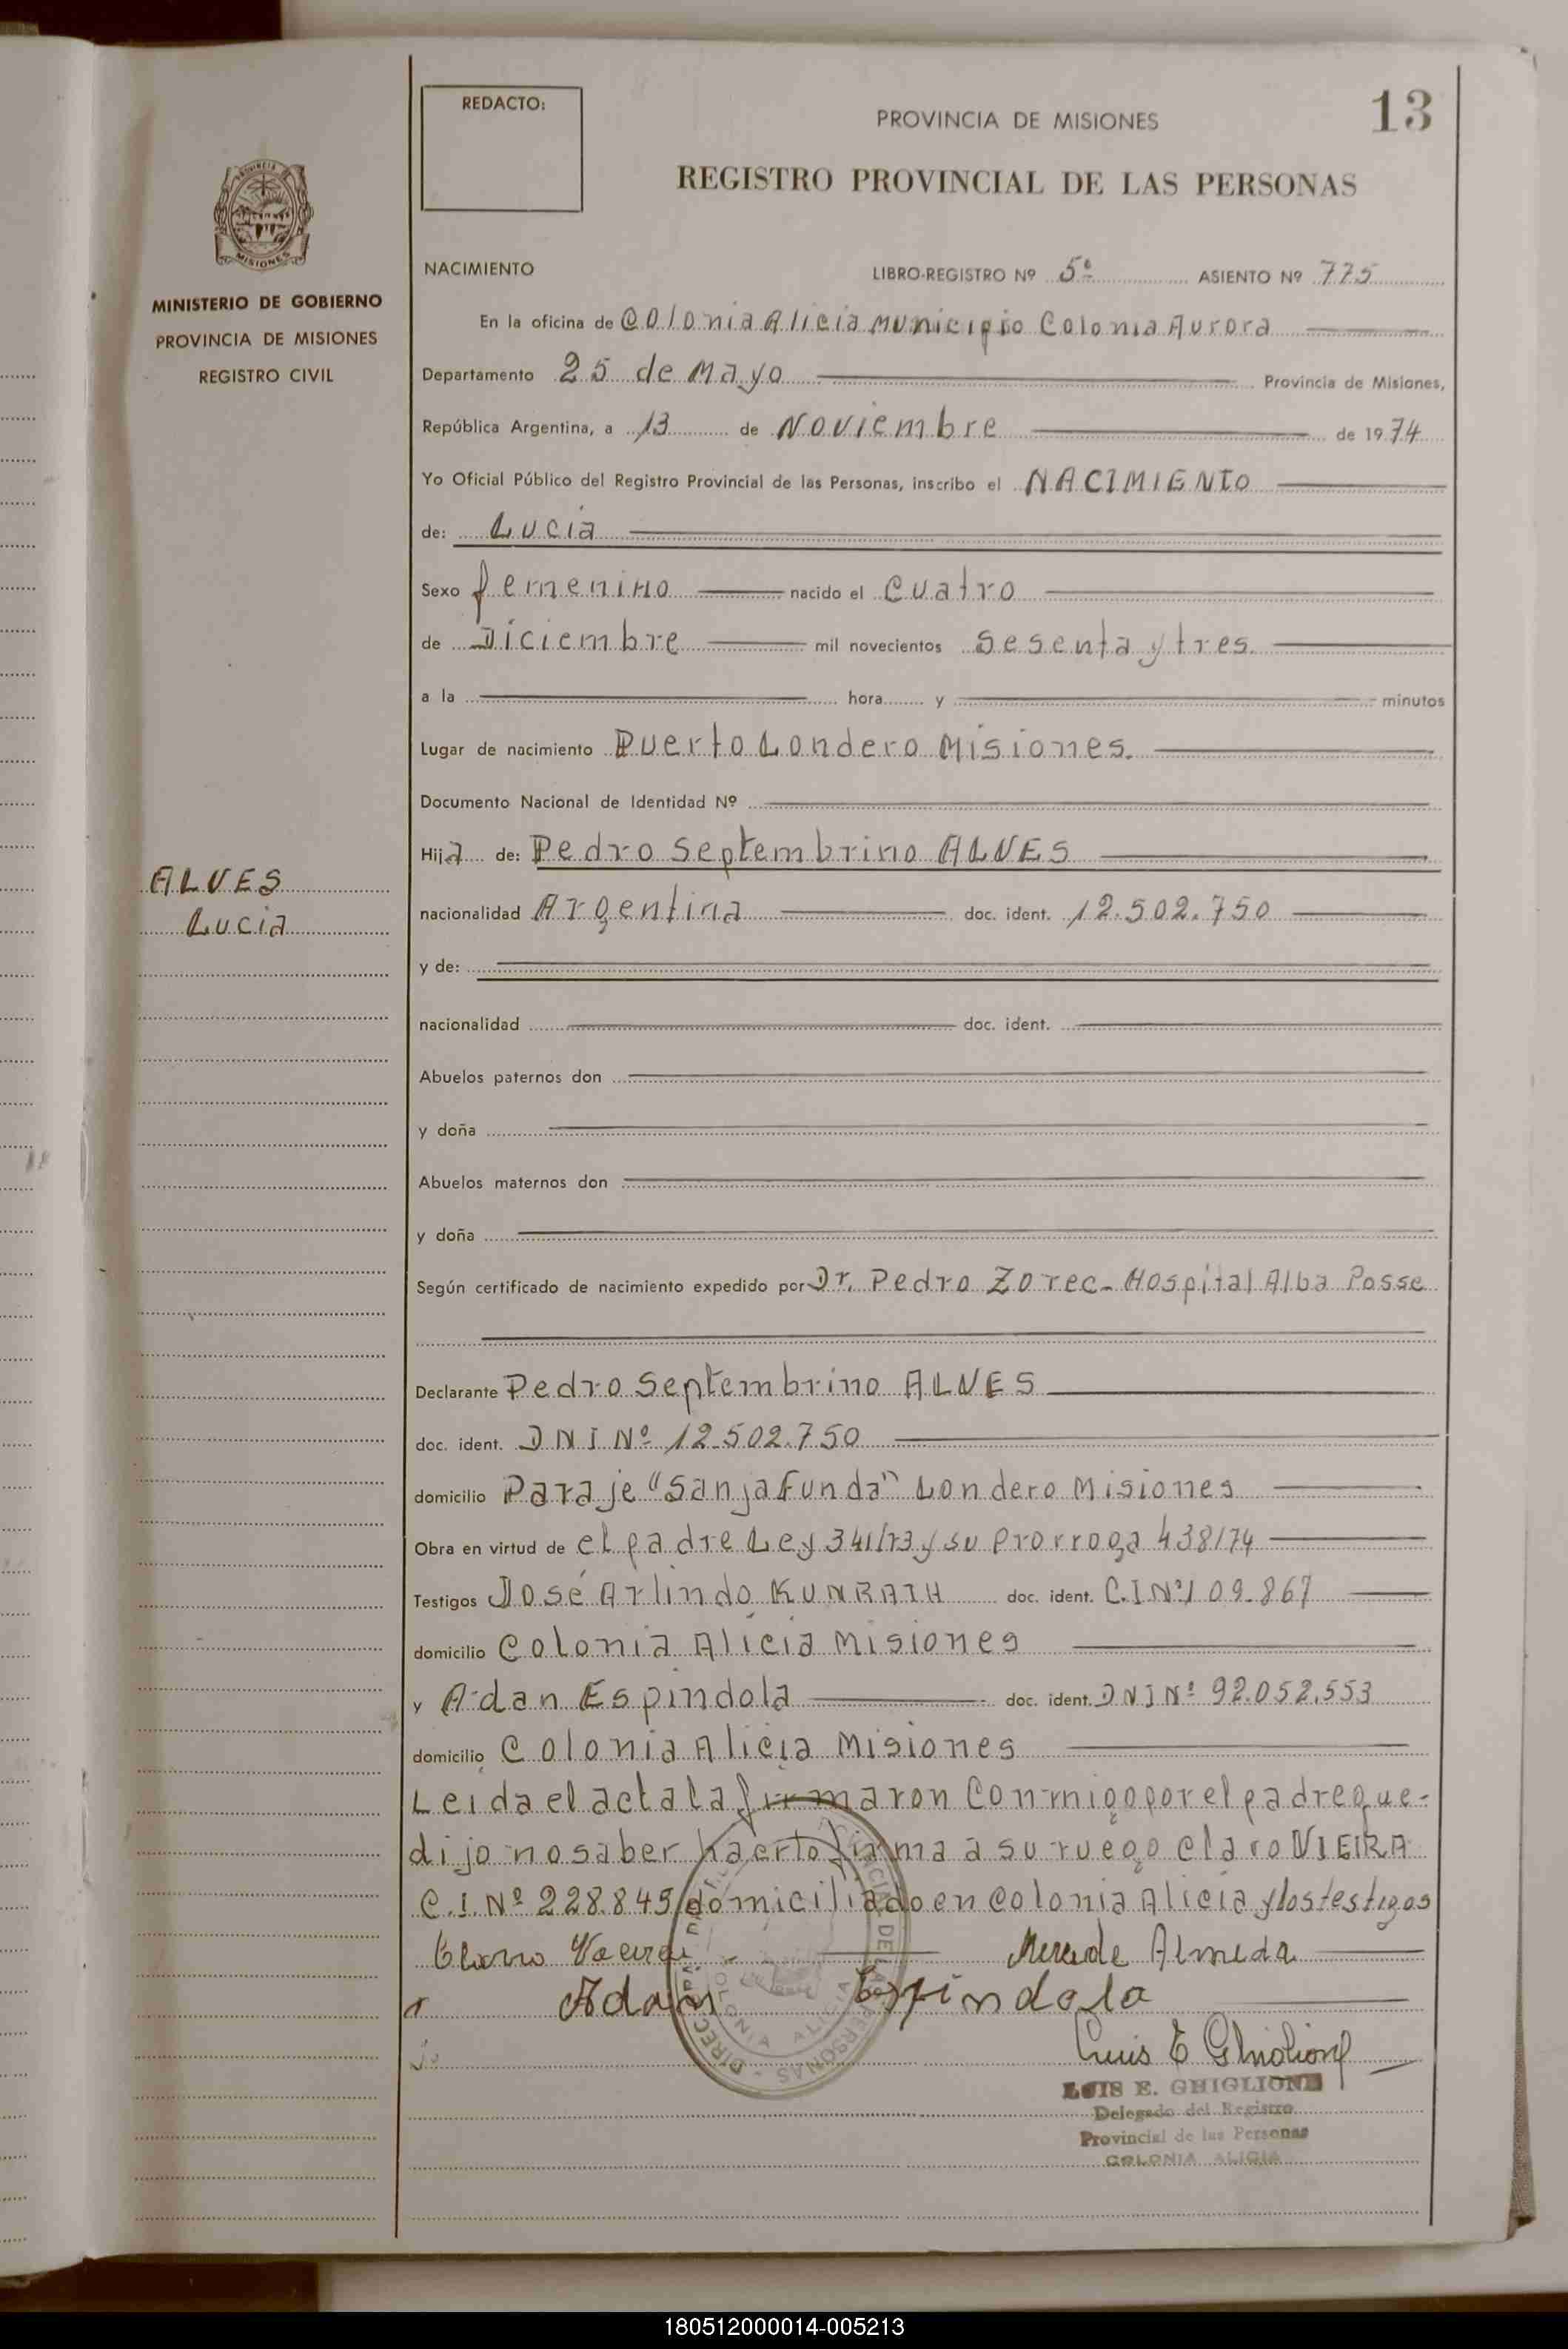 REDACTO:
PROVINCIA DE MISIONES
13
REGISTRO PROVINCIAL DE LAS PERSONAS
MISIONES
MINISTERIO DE GOBIERNO
PROVINCIA DE MISIONES
REGISTRO CIVIL
NACIMIENTO LIBRO-REGISTRO Nº 5º ASIENTO Nº 775
En la oficina de Colonia Alicia Municipio Colonia Aurora
Departamento 25 de Mayo Provincia de Misiones,
República Argentina, a 13 de Noviembre de 1974
Yo Oficial Público del Registro Provincial de las Personas, inscribo el NACIMIENTO
de: Lucia
Sexo femenino nacido el Cuatro
de Diciembre mil novecientos Sesenta y tres.
a la hora y minutos
Lugar de nacimiento Puerto Londero Misiones.
Documento Nacional de Identidad Nº
Hija de: Pedro Septembrino ALVES
ALVES
Lucia
nacionalidad Argentina doc. ident. 12.502.750
y de:
nacionalidad doc. ident.
Abuelos paternos don
y doña
Abuelos maternos don
y doña
Según certificado de nacimiento expedido por Dr. Pedro Zorec - Hospital Alba Posse
Declarante Pedro Septembrino ALVES
doc. ident. DNI Nº 12.502.750
domicilio Paraje "Sanja Funda" Londero Misiones
Obra en virtud de el padre Ley 341/73 y su Prorroga 438/74
Testigos José Arlindo KUNRATH doc. ident. C.I Nº 109.867
domicilio Colonia Alicia Misiones
y Adan Espindola doc. ident. DNI Nº 92.052.553
domicilio Colonia Alicia Misiones
Leida el acta la firmaron Conmigo por el padre que-
dijo no saber haerlo firma a su ruego Claro VIEIRA
C.I. Nº 228.845 domiciliado en Colonia Alicia y los testigos
Almeda
Adan Espindola
Luis E Ghiglione
LUIS E. GHIGLIONE
Delegado del Registro
Provincial de las Personas
COLONIA ALICIA
180512000014-005213